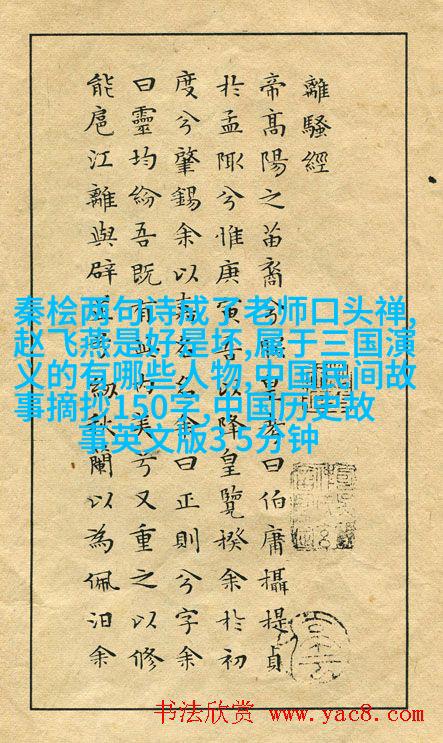 離騷經
帝高陽之苗裔兮朕皇考曰伯庸攝提貞
於孟陬兮惟庚寅吾以降皇覽揆余於初
度兮肇錫余以嘉名名余曰正則兮字余
曰靈均紛吾既有此內美兮又重之以修
能扈江離與辟芷兮紉秋蘭以為佩汨余
秦桧两句诗成了老师口头禅,
赵飞燕是好是坏,属于三国演
义的有哪些人物,中国民间故
事摘抄150字,中国历史故
事英文版3.5分钟
书法欣赏 www.yac8.com